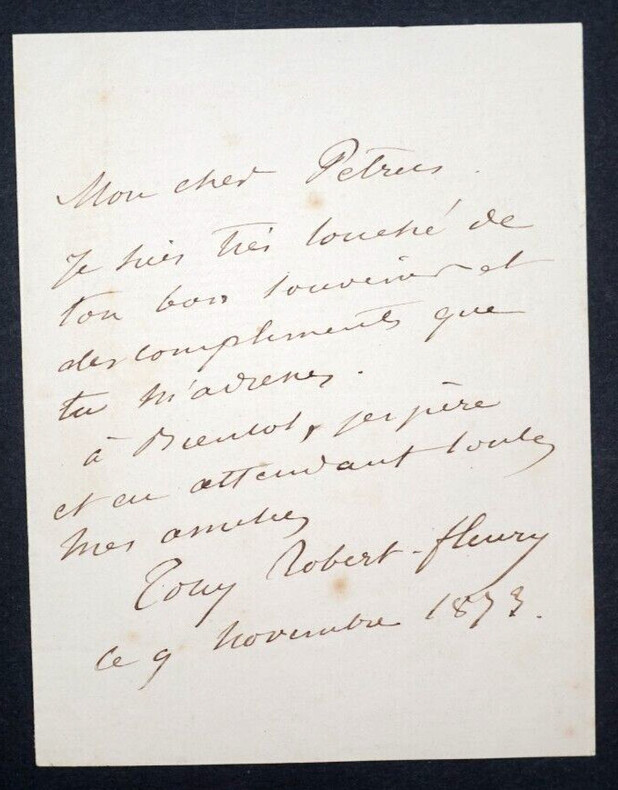 Mon cher Petrus.
Je suis très touché de
ton bon souvenir et
des compliments que
tu m'adresses.
à Bientot, j'espère
et en attendant toutes
mes amitiés
Tony Robert-fleury
ce 9 novembre 1873.